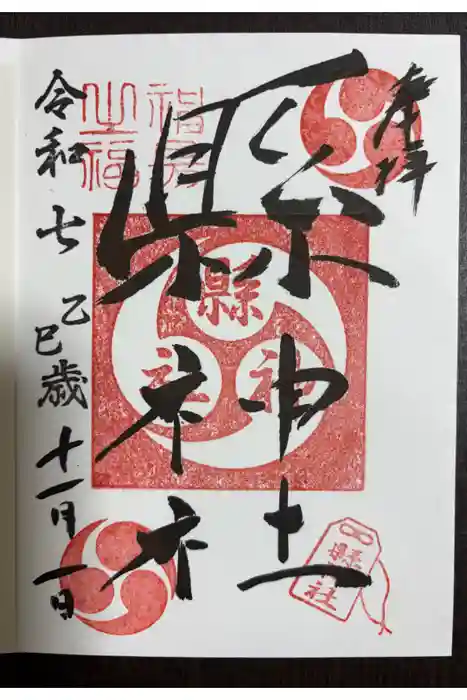 奉拝
縣神社
令和七乙巳歳十一月一日
縣
神
社
縣
社